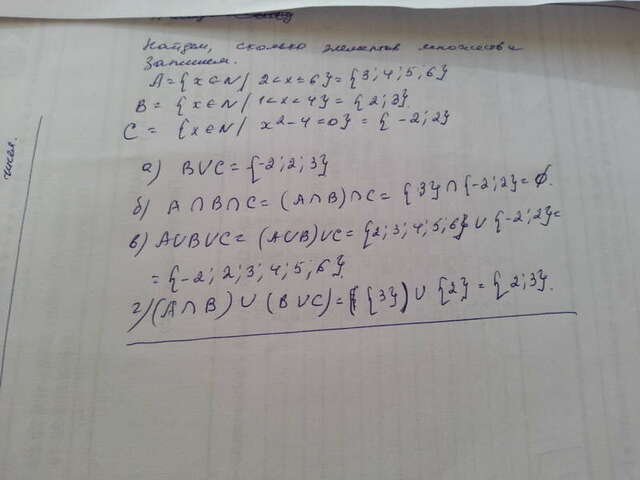 Найдем, сколько элементов множестве
Запишем.
A = {x ∈ N / 2 < x = 6} = {3; 4; 5; 6}
B = {x ∈ N / 1 < x < 4} = {2; 3}.
C = {x ∈ N / x2 - 4 = 0} = {-2; 2}
а) B ∪ C = {-2; 2; 3}
б) A ∩ B ∩ C = (A ∩ B) ∩ C = {3} ∩ {-2; 2} = ∅.
в) A ∪ B ∪ C = (A ∪ B) ∪ C = {2; 3; 4; 5; 6} ∪ {-2; 2} =
= {-2; 2; 3; 4; 5; 6}
г) (A ∩ B) ∪ (B ∪ C) = ({3}) ∪ {2} = {2; 3}.